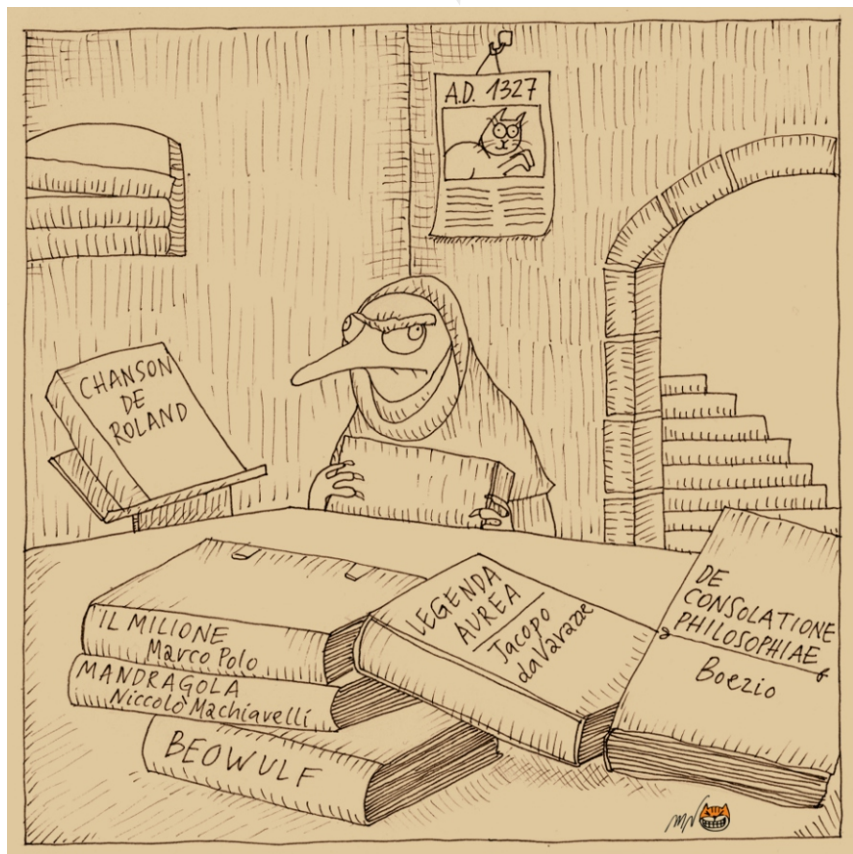 A.D. 1327
CHANSON
DE
ROLAND
IL MILIONE
Marco Polo
MANDRAGOLA
Niccolò Machiavelli
BEOWULF
LEGENDA
AUREA
Jacopo
da Varazze
DE
CONSOLATIONE
PHILOSOPHIAE
Boezio